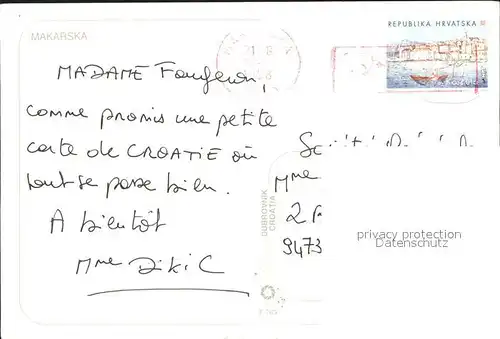 MAKARSKA
REPUBLIKA HRVATSKA
MADAME Fougeron,
comme promis une petite
carte de CROATIE où
tout se passe bien.
A bientôt
Mme DikiC
DUBROVNIK
CROATIA
Mme
2
9473
privacy protection
Datenschutz